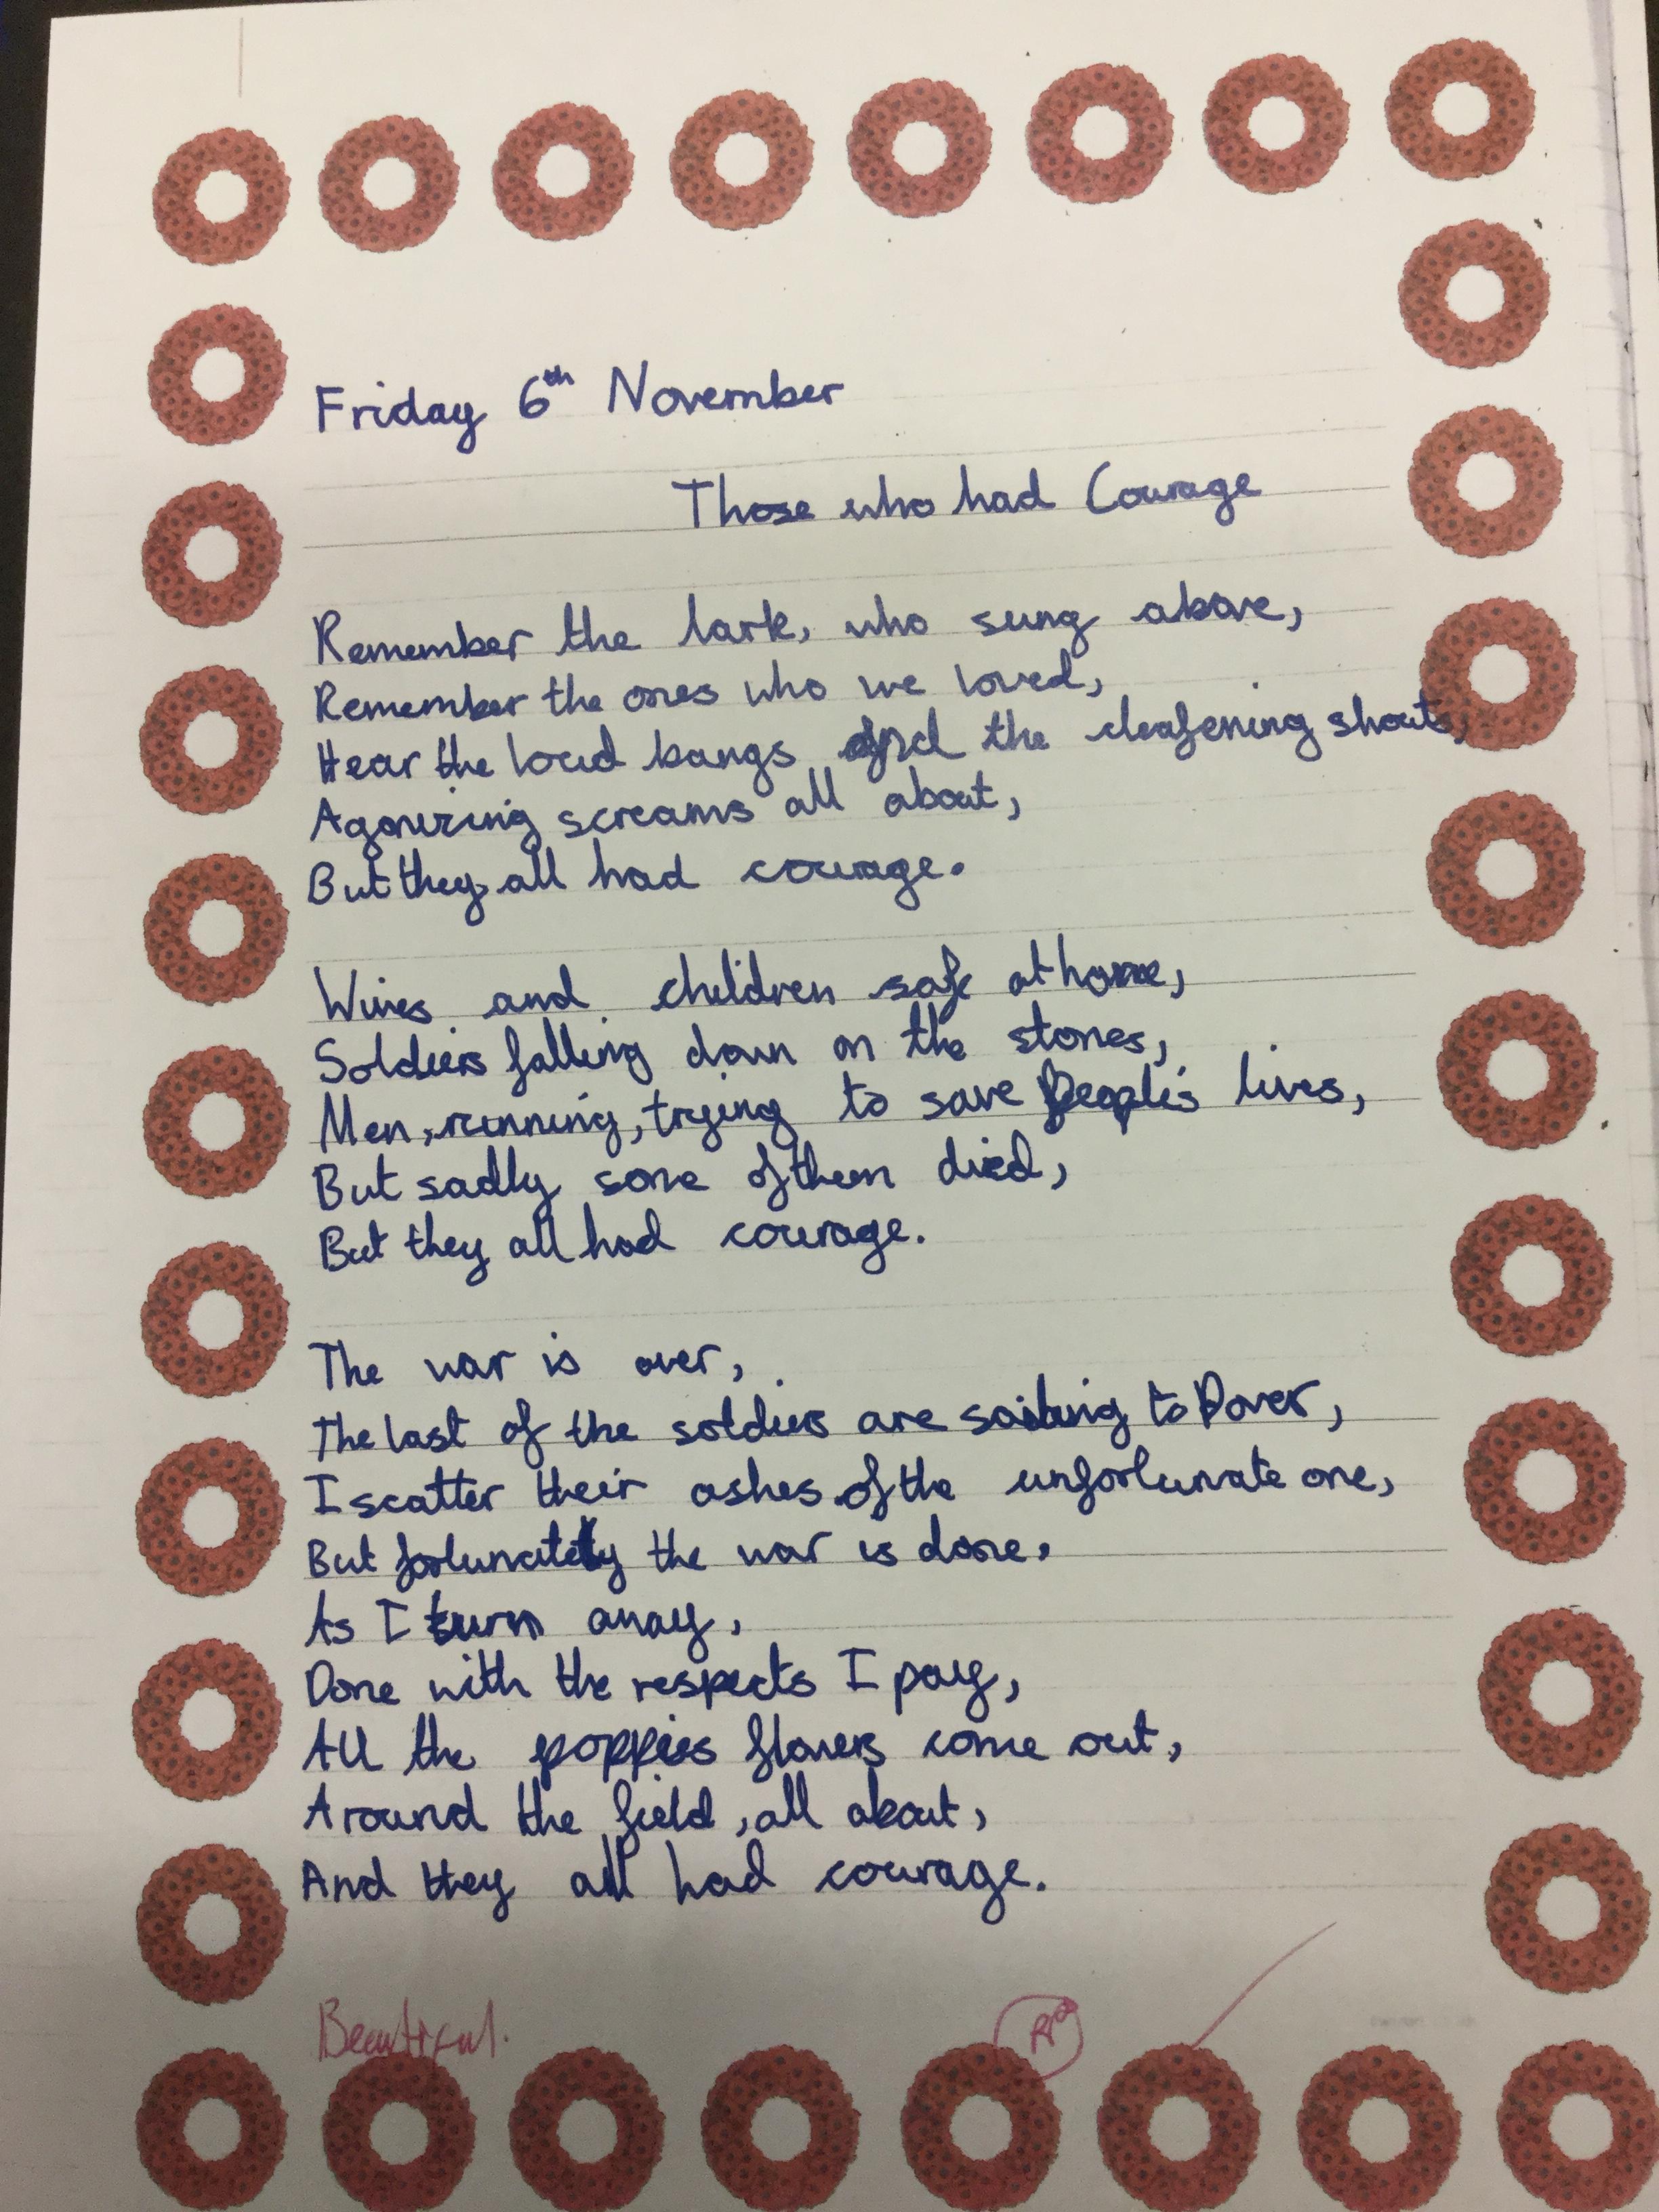 Friday 6th November
Those who had Courage
Remember the lark, who sung above,
Remember the ones who we loved,
Hear the loud bangs and the deafening shouts,
Agonizing screams all about,
But they all had courage.
Wives and children safe at home,
Soldiers falling down on the stones,
Men, running, trying to save people's lives,
But sadly some of them died,
But they all had courage.
The war is over,
The last of the soldiers are sailing to Dover,
I scatter their ashes of the unfortunate one,
But fortunately the war is done,
As I turn away,
Done with the respects I pay,
All the poppies flowers come out,
Around the field, all about,
And they all had courage.
Beautiful.